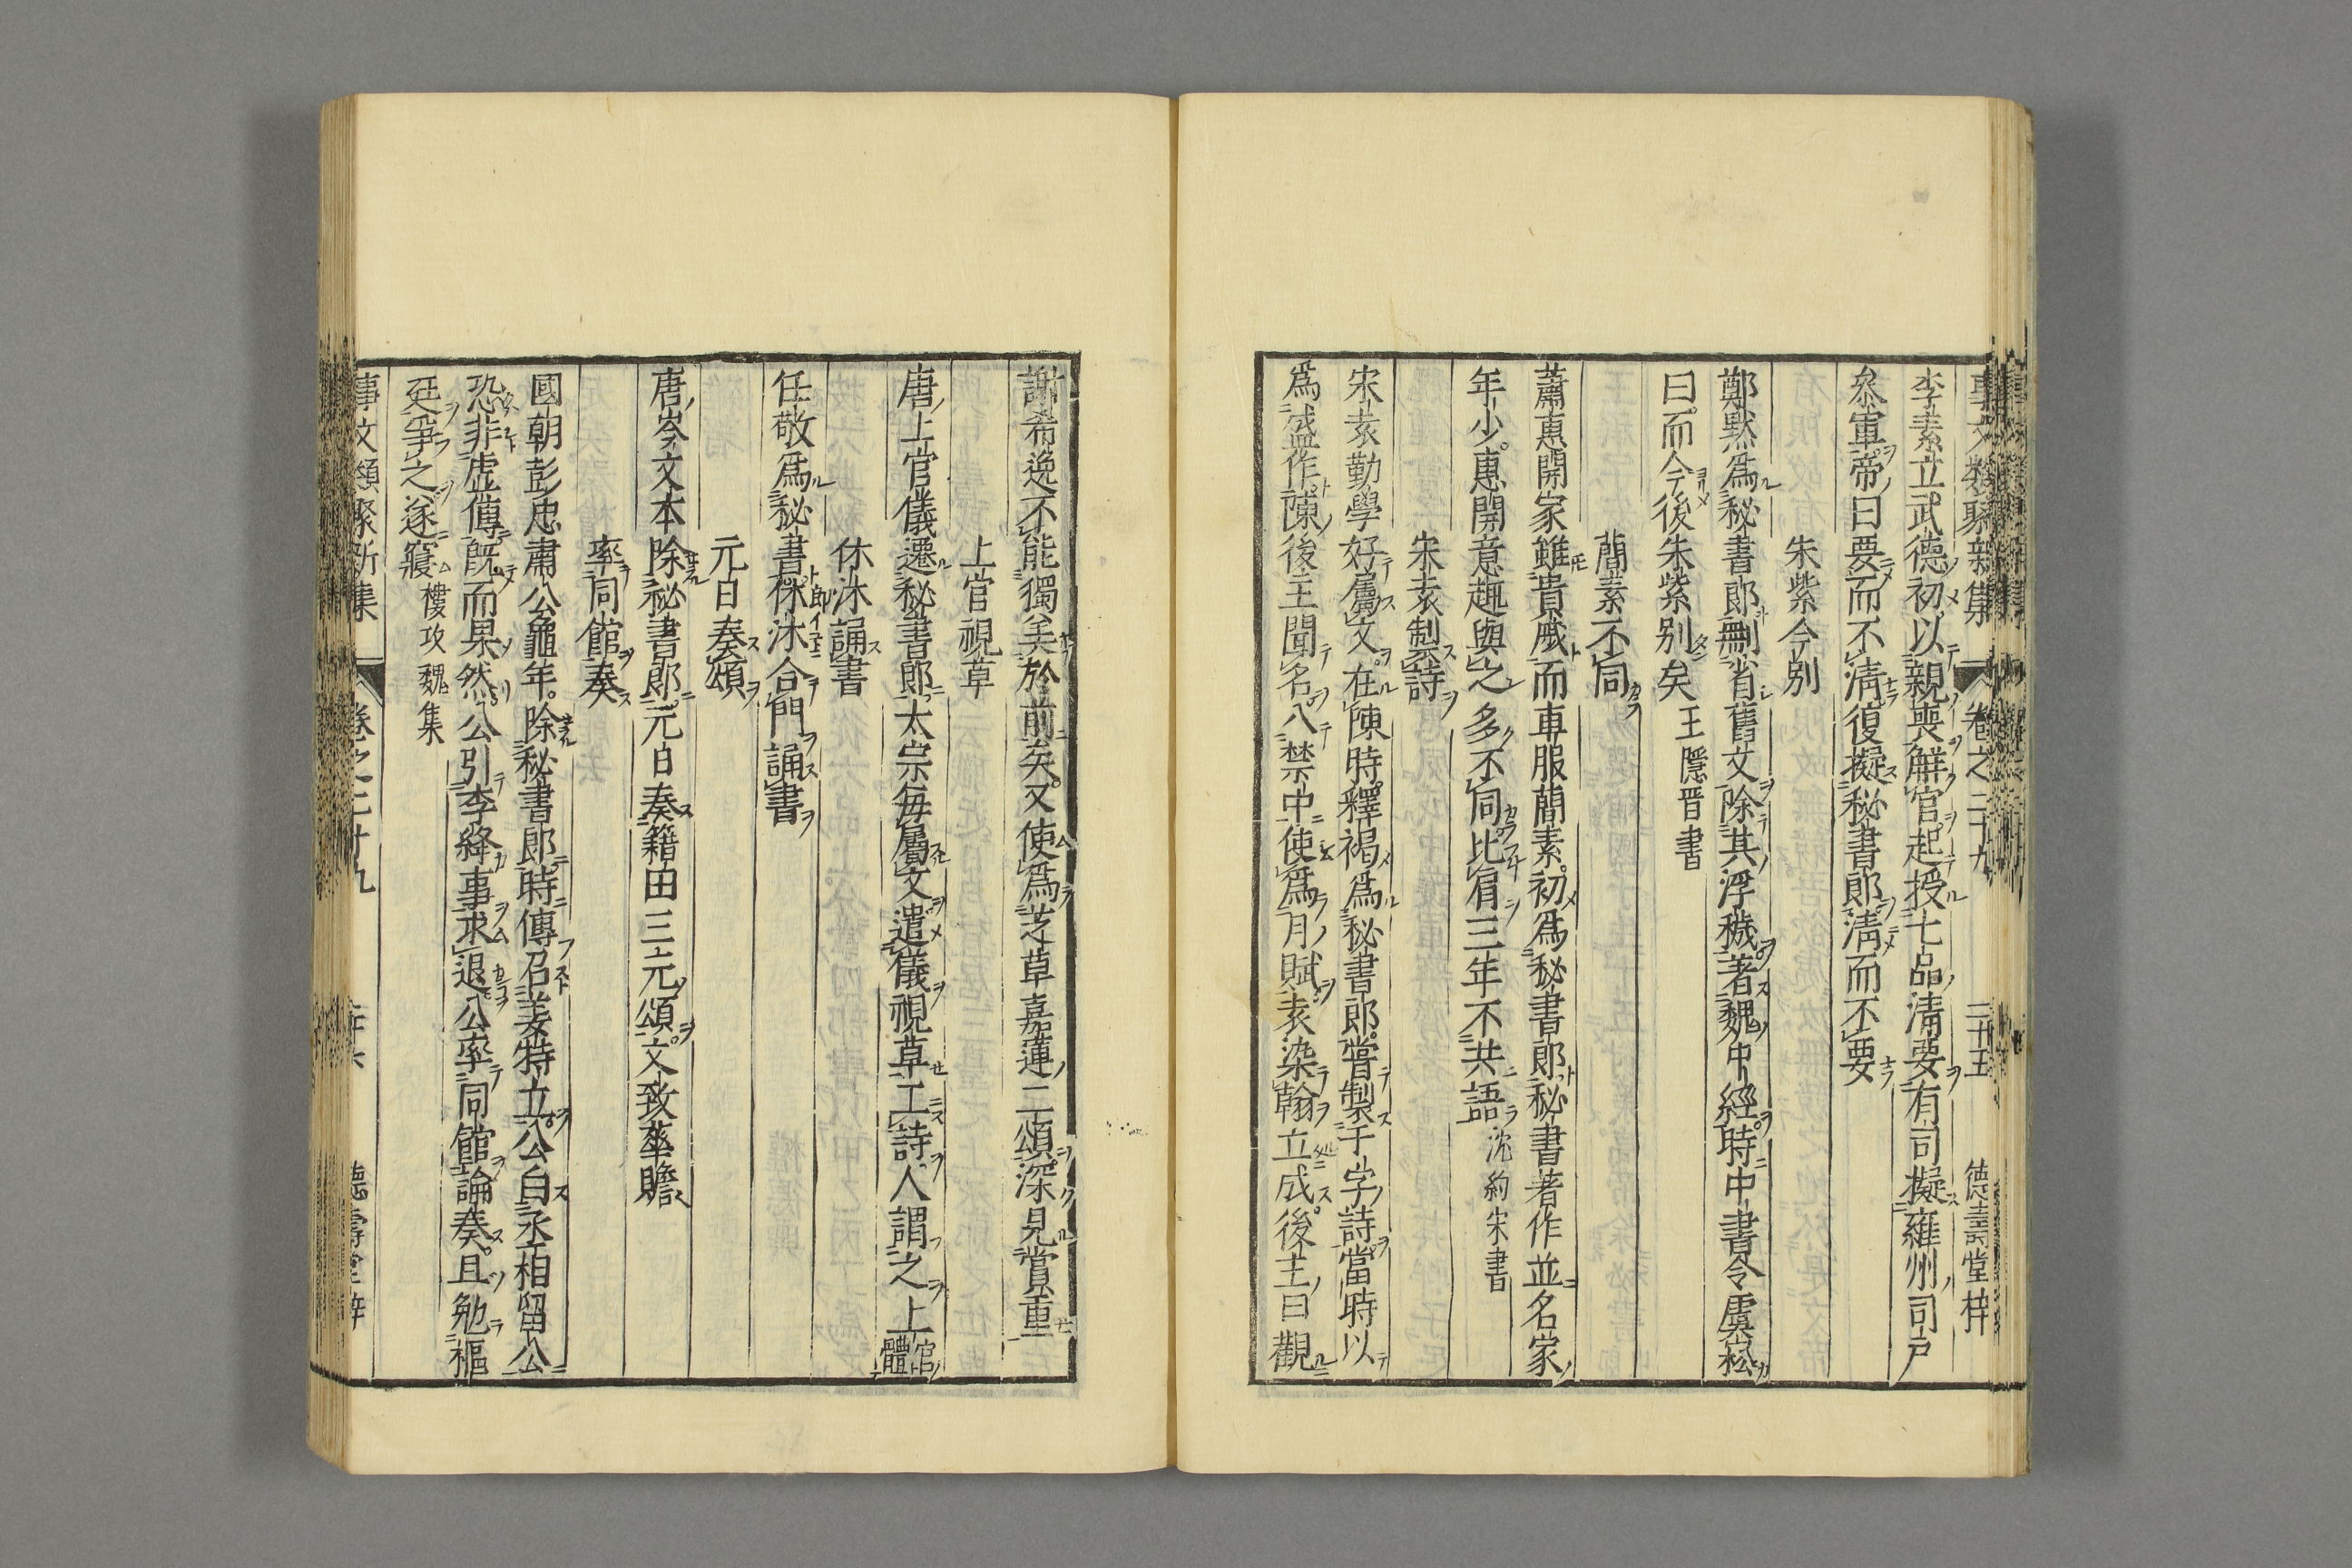 事文類聚新集 卷之二十九 二十五 德壽堂梓
李素立武德初以親喪解官起授七品清要有司擬雍州司戶
參軍帝曰要而不清復擬秘書郎清而不要
朱紫今別
鄭默爲秘書郎刪省舊文除其浮穢著魏中經時中書令虞松
曰而今後朱紫别矣王隱晋書
蕳素不同
蕭惠開家雖貴戚而車服蕳素初爲秘書郎秘書著作並名家
年少惠開意趣與之多不同比肩三年不共語沈約宋書
宋袁製詩
宋袁勤學好屬文在陳時釋褐爲秘書郎嘗製千字詩當時以
爲盛作陳後主聞名入禁中使爲月賦袁染翰立成後主曰觀
謝希逸不能獨美於前矣又使爲芝草嘉蓮二頌深見賞重
上官視草
唐上官儀遷秘書郎太宗每屬文遣儀視草工詩人謂之上官體
休沐誦書
任敬爲秘書郎休沐合門誦書
元日奏頌
唐岑文本除秘書郎元日奏籍田三元頌文致華贍
率同館奏
國朝彭忠肅公龜年除秘書郎時傳召姜特立公白丞相留公
恐非虛傳既而果然公引李絳事求退公率同館論奏且勉樞
廷爭之遂寢樓攻魏集
事文類聚新集 卷之二十九 德壽堂梓